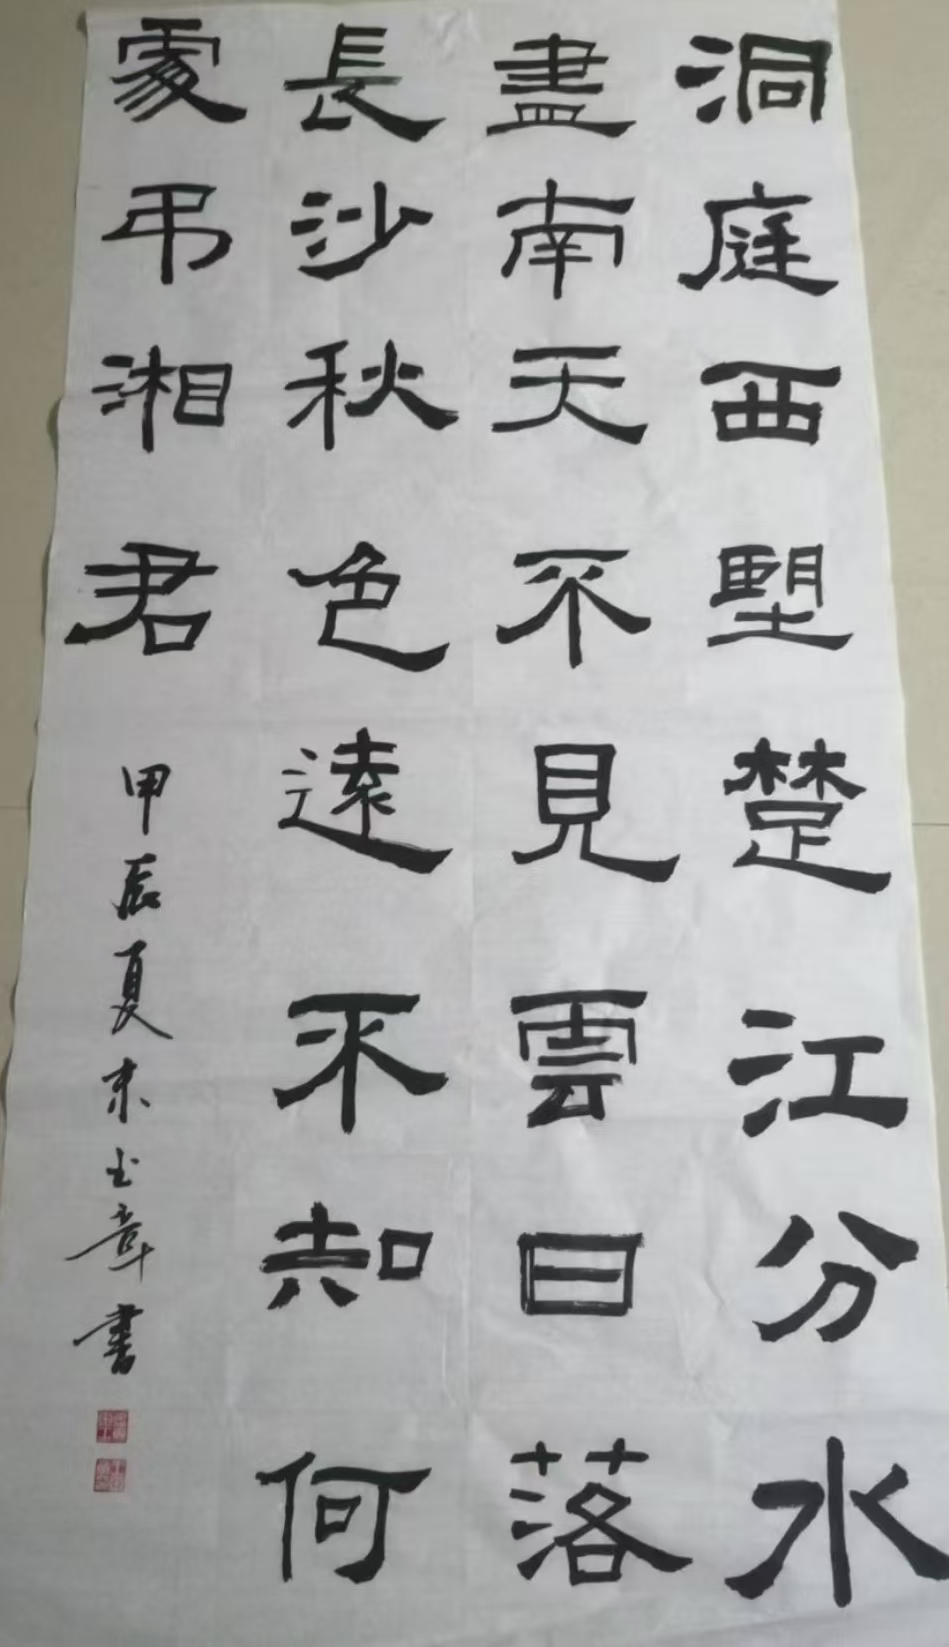 洞庭西朢楚江分水
盡南天不見雲日落
長沙秋色遠不知何
䖏弔湘君
甲辰夏末玉章書